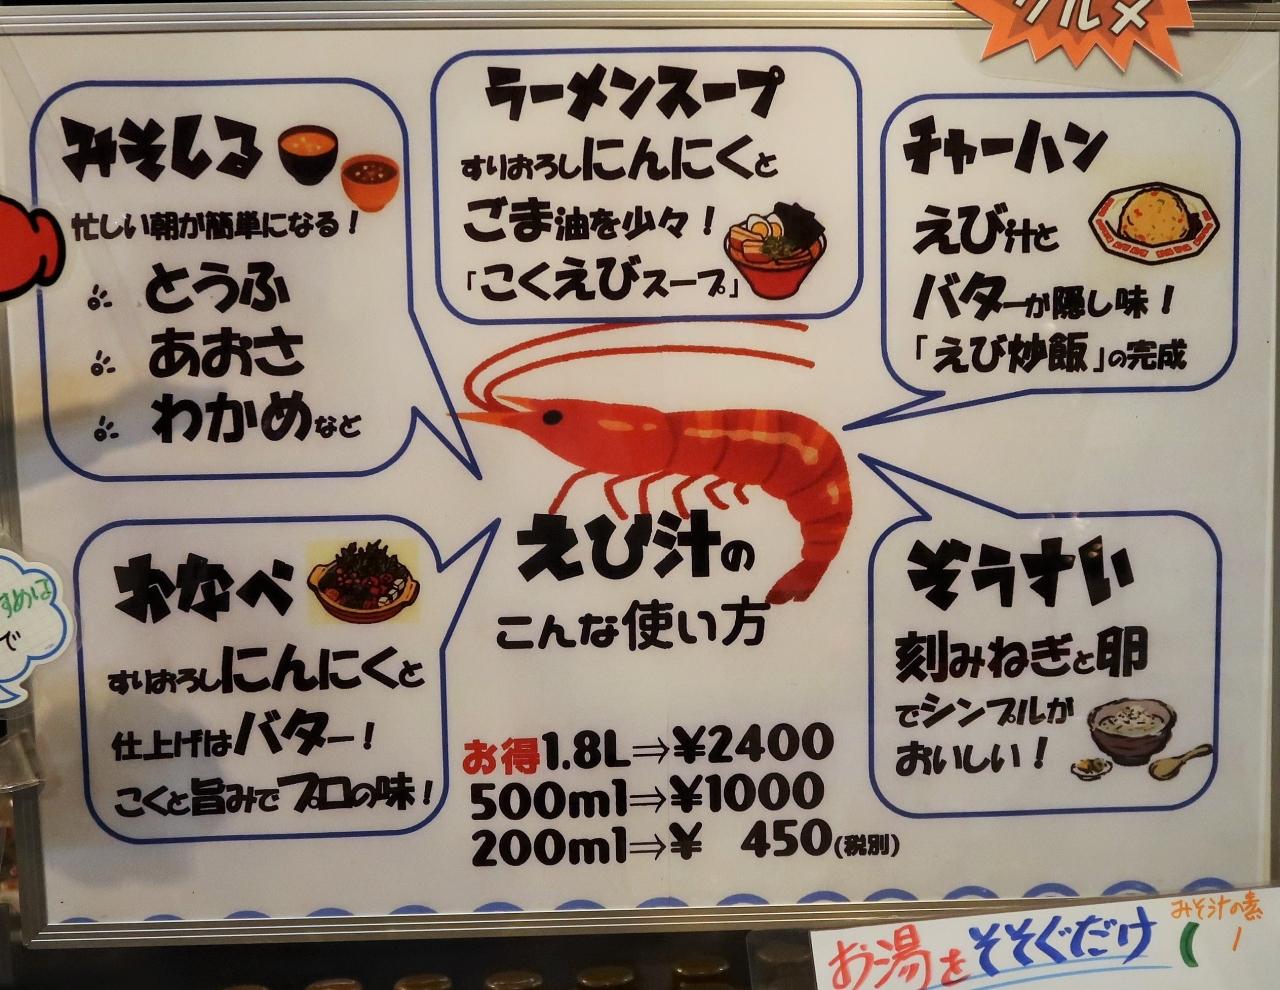 グルメ
みそしる
忙しい朝が簡単になる！
とうふ
あおさ
わかめなど
ラーメンスープ
すりおろしにんにくと
ごま油を少々！
「こくえびスープ」
チャーハン
えび汁と
バターが隠し味！
「えび炒飯」の完成
おなべ
すりおろしにんにくと
仕上げはバター！
こくと旨みでプロの味！
えび汁の
こんな使い方
お得1.8L⇒¥2400
500ml⇒¥1000
200ml⇒¥ 450(税別)
ぞうすい
刻みねぎと卵
でシンプルが
おいしい！
すめは
で
お湯をそそぐだけ
みそ汁の素